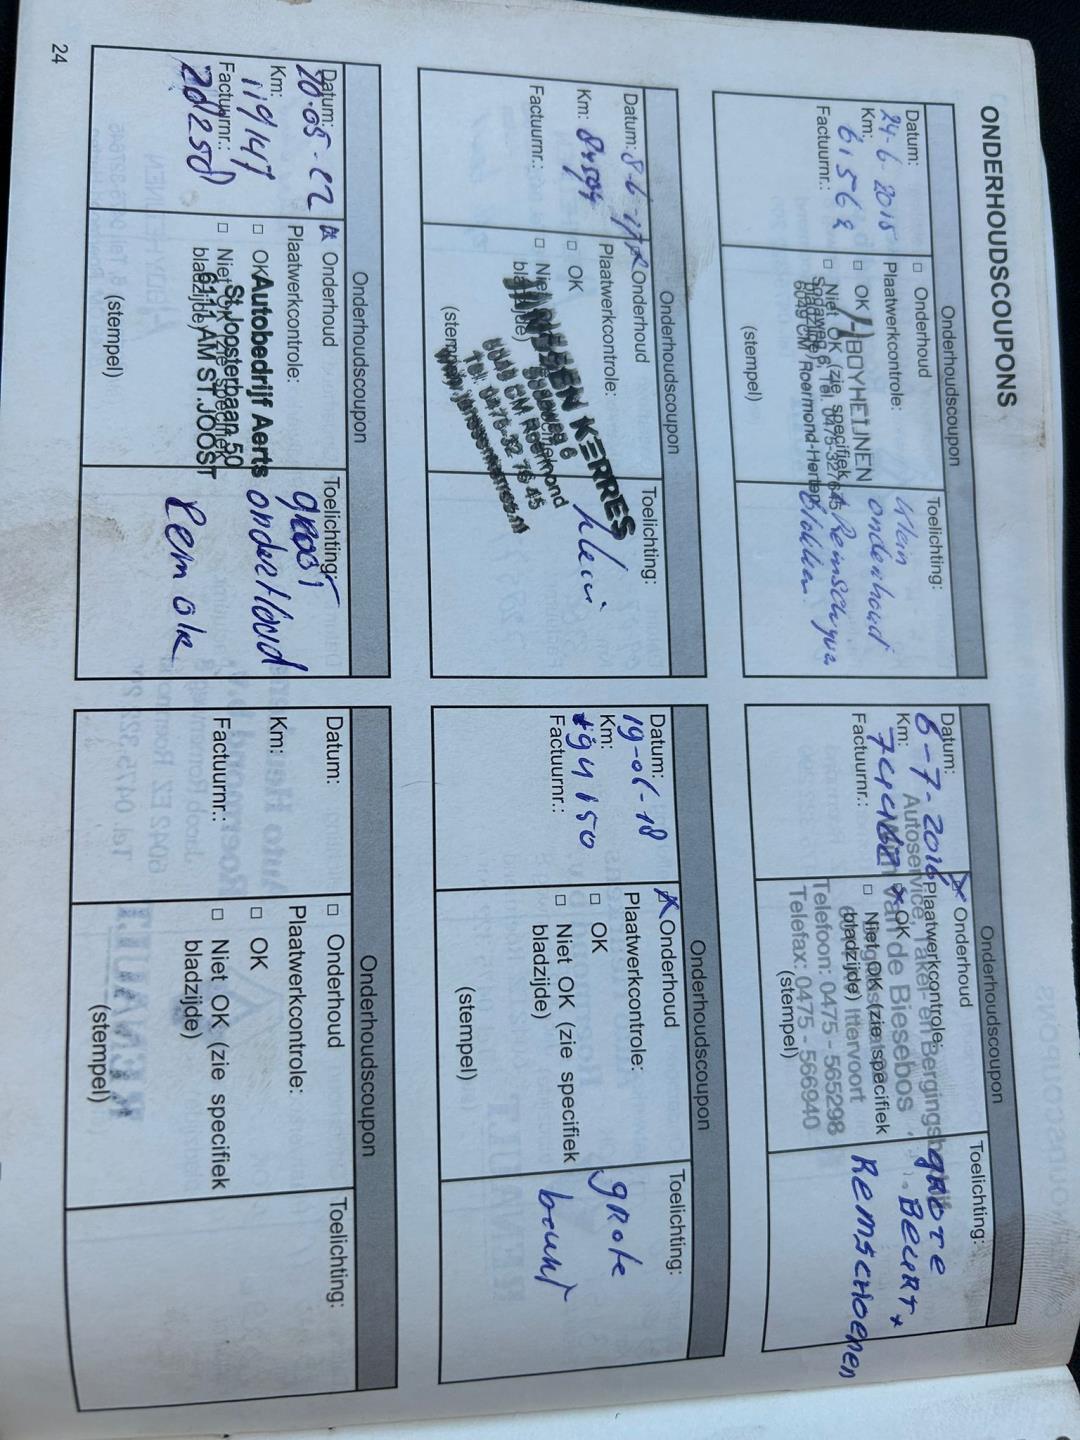 ONDERHOUDSCOUPONS
Onderhoudscoupon
Datum:
24-6-2015
Km:
6156
Factuurnr.:
□ Onderhoud
Plaatwerkcontrole:
□ OK
□ Niet OK (zie specifiek
bladzijde)
(stempel)
BOYHEIJNEN
Spoaweg 6, Tel. 0475-327645
6049 CM Roermond-Herten
Toelichting:
klein
onderhoud
+ Remschijven
Blokken
Onderhoudscoupon
Datum:
6-7-2016
Km:
Factuurnr.:
Onderhoud
Plaatwerkcontrole:
OK
□ Niet OK (zie specifiek
bladzijde)
(stempel)
Autoservice, Takel- en Bergingsbedrijf
van de Biesebos
Ittervoort
Telefoon: 0475 - 565298
Telefax: 0475 - 566940
Toelichting:
gROTE
BEURT +
REMSCHOENEN
Onderhoudscoupon
Datum: 8-6-17
Km:
Factuurnr.:
Onderhoud
Plaatwerkcontrole:
□ OK
□ Niet
bladzijde)
(stempel)
KERRES
6
CM Roermond
Tel. 0475-32 76 45
Toelichting:
klein
Onderhoudscoupon
Datum:
19-01-18
Km:
94150
Factuurnr.:
Onderhoud
Plaatwerkcontrole:
□ OK
□ Niet OK (zie specifiek
bladzijde)
(stempel)
Toelichting:
gRote
beurt
Onderhoudscoupon
Datum:
20-05-22
Km:
119147
Factuurnr.:
Onderhoud
Plaatwerkcontrole:
□ OK
□ Niet OK (zie specifiek
bladzijde)
(stempel)
Autobedrijf Aerts
St. Joosterbaan 50
6111 AM ST.JOOST
Toelichting:
groot
onderhoud
Rem olie
Onderhoudscoupon
Datum:
Km:
Factuurnr.:
□ Onderhoud
Plaatwerkcontrole:
□ OK
□ Niet OK (zie specifiek
bladzijde)
(stempel)
Toelichting:
24